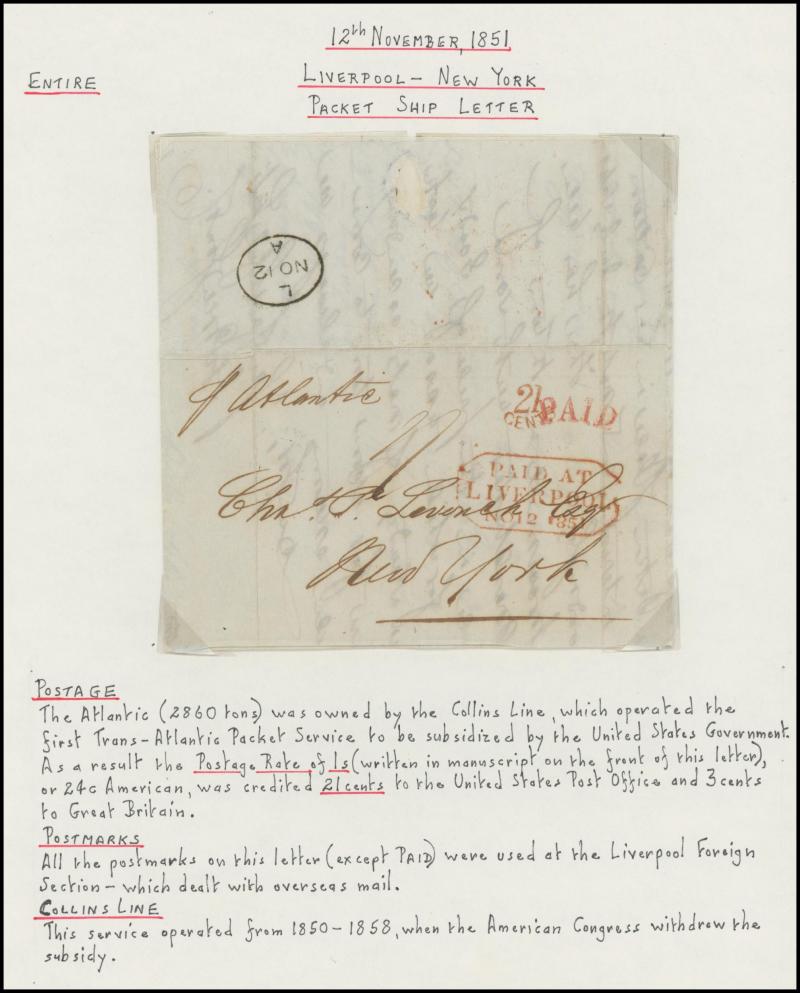 12th November, 1851
Liverpool - New York
Entire
Packet Ship Letter
L
NO 12
A
p Atlantic
21
CENTS
PAID
1/
PAID AT
LIVERPOOL
NO 12 185
Cha. P. Esq
New York
Postage
The Atlantic (2860 tons) was owned by the Collins Line, which operated the
first Trans-Atlantic Packet Service to be subsidized by the United States Government.
As a result the Postage Rate of 1s (written in manuscript on the front of this letter),
or 24c American, was credited 21cents to the United States Post Office and 3cents
to Great Britain.
Postmarks
All the postmarks on this letter (except PAID) were used at the Liverpool Foreign
Section - which dealt with overseas mail.
Collins Line
This service operated from 1850-1858, when the American Congress withdrew the
subsidy.